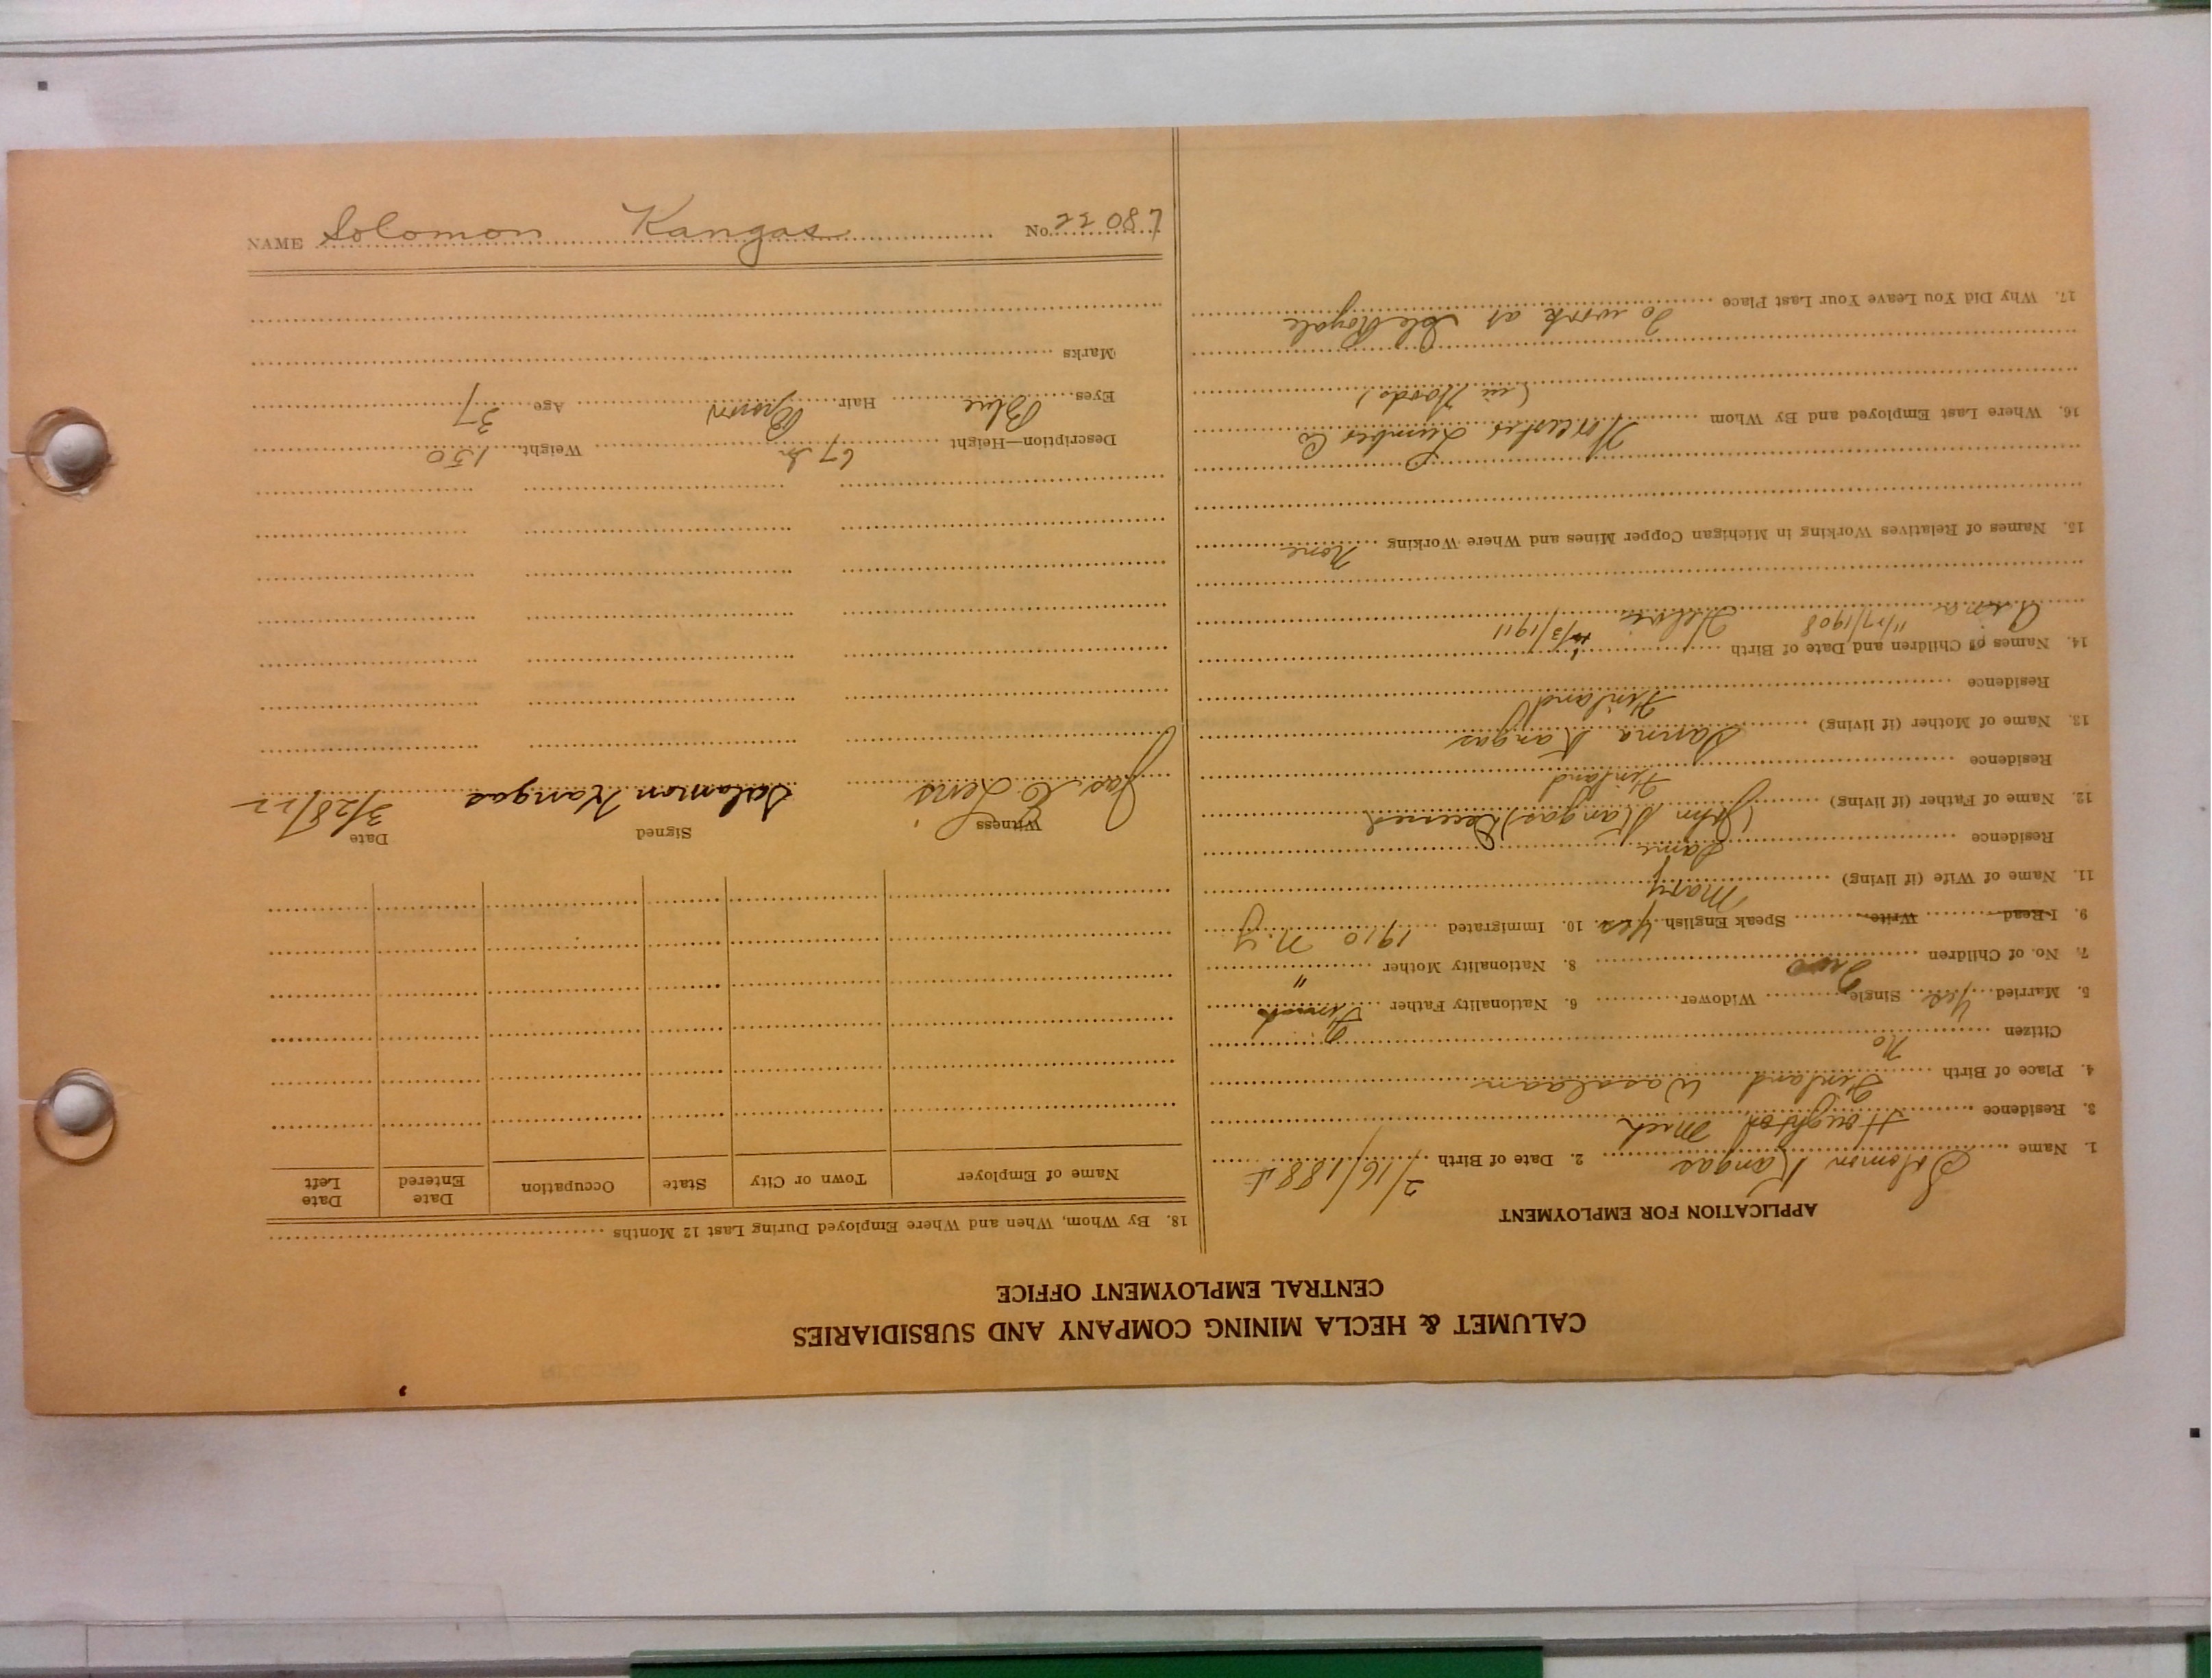 CALUMET & HECLA MINING COMPANY AND SUBSIDIARIES
CENTRAL EMPLOYMENT OFFICE
APPLICATION FOR EMPLOYMENT
1. Name Solomon Kangas 2. Date of Birth 2/16/188
3. Residence Houghton Mich
4. Place of Birth Finland Wasalaan
Citizen No
5. Married Yes Single Widower 6. Nationality Father Finnish
7. No. of Children Two 8. Nationality Mother "
9. I Read Write Speak English Yes 10. Immigrated 1910 N.Y
11. Name of Wife (if living) Mary
Residence Same
12. Name of Father (if living) (John Kangas) Deceased
Residence Finland
13. Name of Mother (if living) Sanna Kangas
Residence Finland
14. Names of Children and Date of Birth
11/17/1908 /3/1911
15. Names of Relatives Working in Michigan Copper Mines and Where Working None
16. Where Last Employed and By Whom Worcester Lumber Co
(in Woods)
17. Why Did You Leave Your Last Place
To work at Isle Royale
18. By Whom, When and Where Employed During Last 12 Months
Name of Employer Town or City State Occupation Date Entered Date Left
Witness Signed Date
Jas. Salamon Kangas 3/28/22
Description—Height 67 in Weight 150
Eyes Blue Hair Brown Age 37
Marks
NAME Solomon Kangas No.